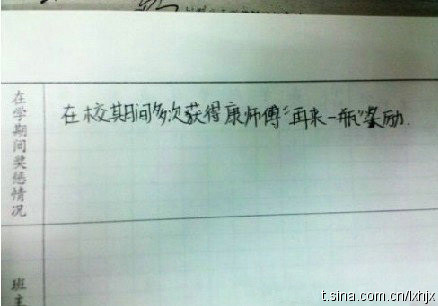 在学期间奖惩情况
在校其间多次获得康师傅“再来一瓶”奖励.
班主
t.sina.com.cn/lxhjx